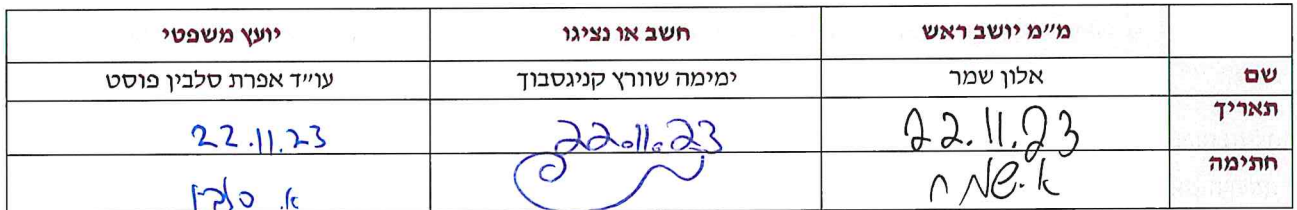 מ״מ יושב ראש חשב או נציגו יועץ משפטי
שם אלון שמר ימימה שוורץ קניגסבוך עו״ד אפרת סלבין פוסט
תאריך 22.11.23 22.11.23 22.11.23
חתימה א. סלבין